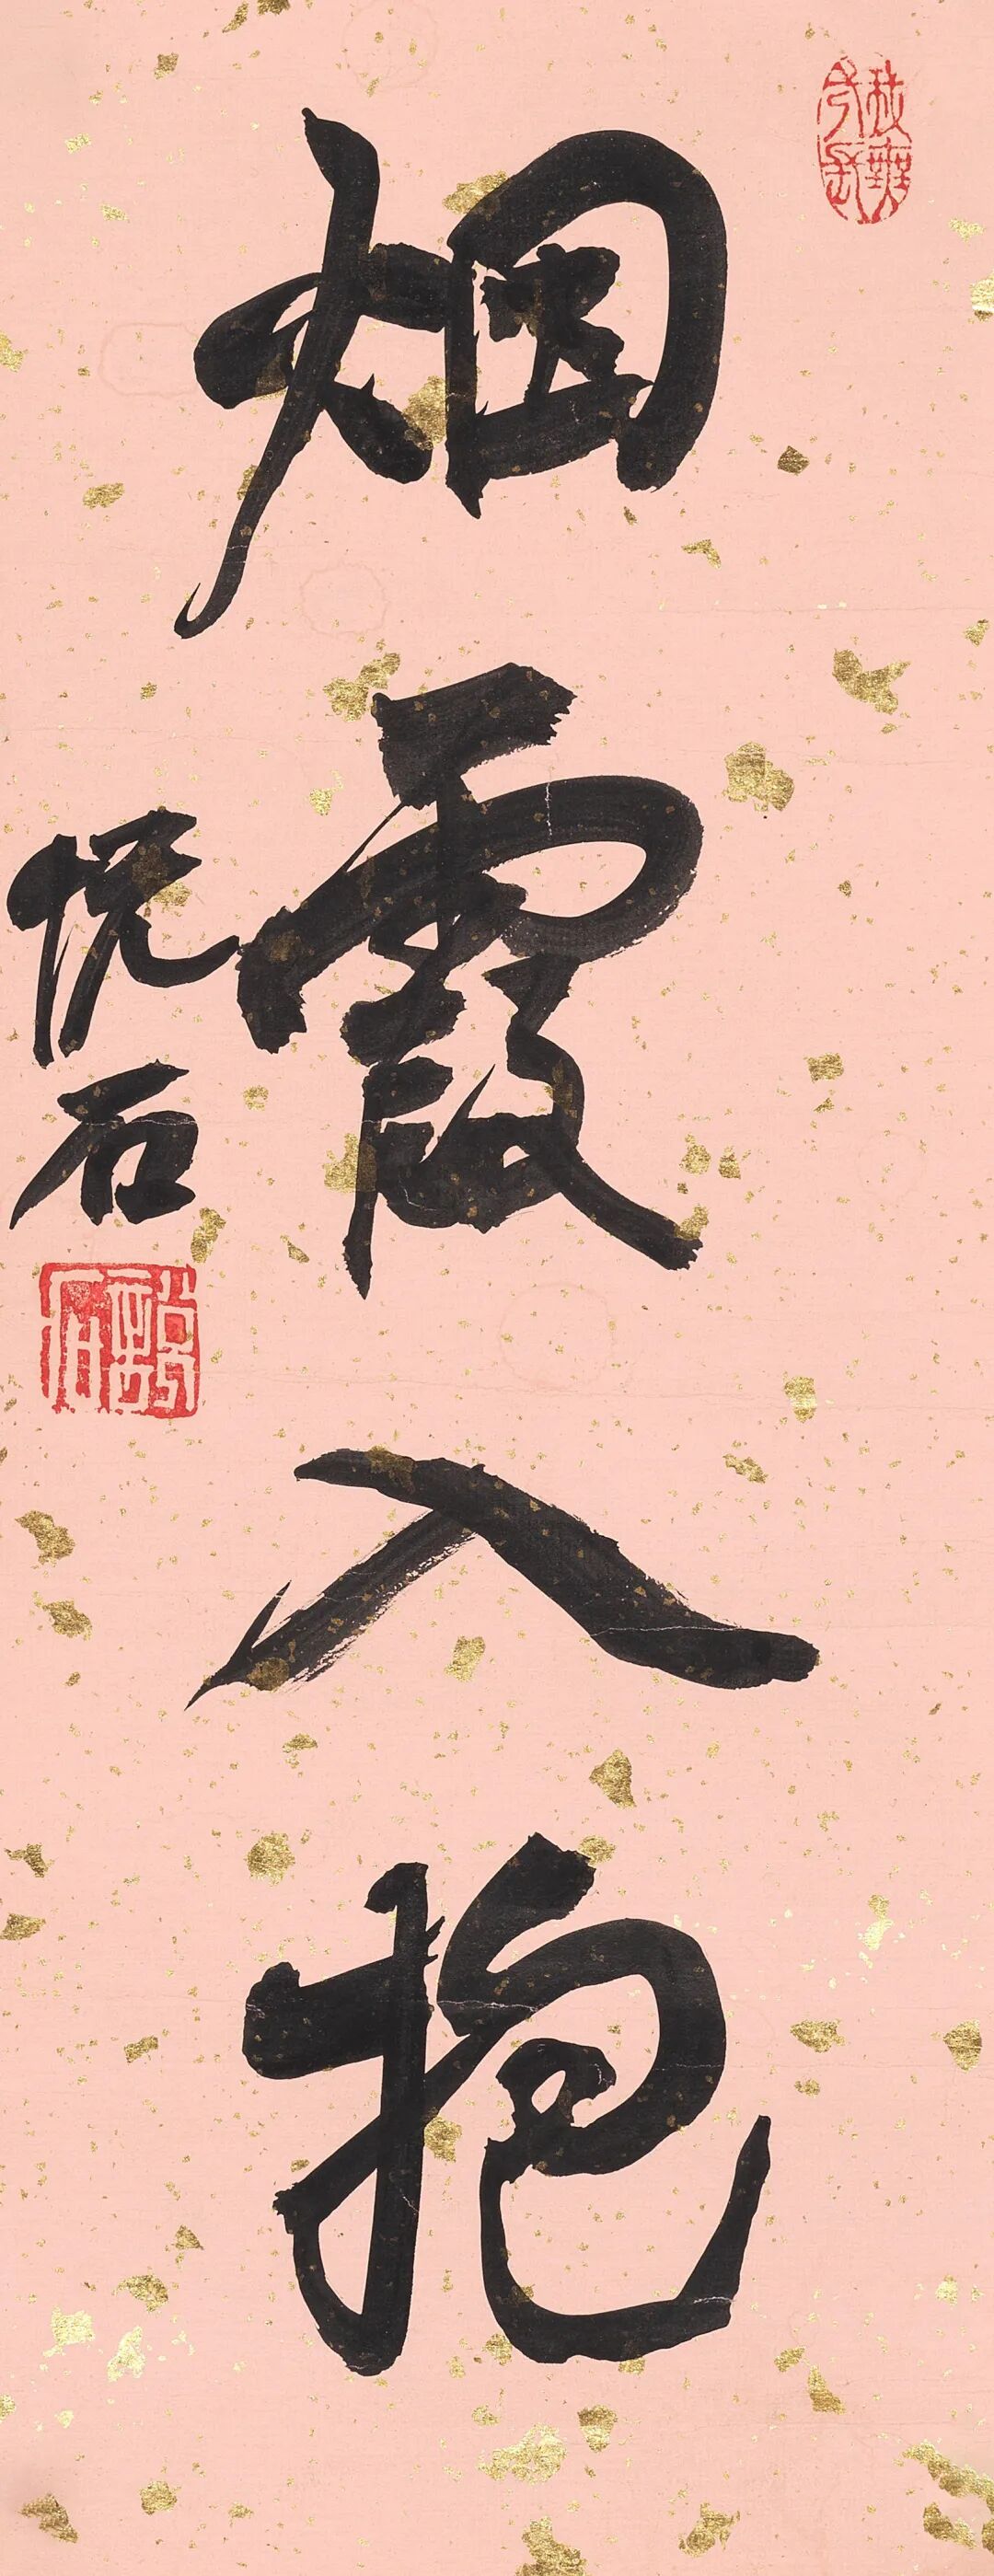 烟霞入抱
悦石